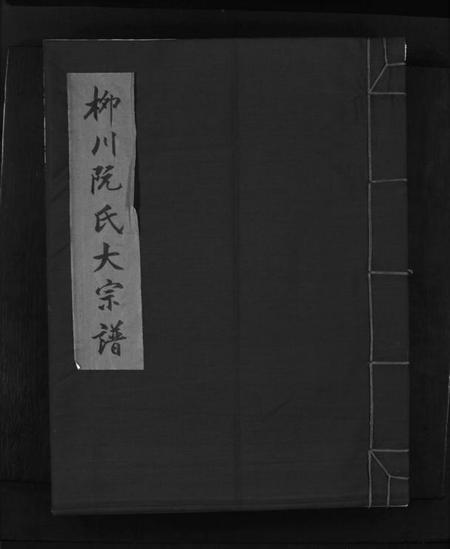 柳川阮氏大宗谱